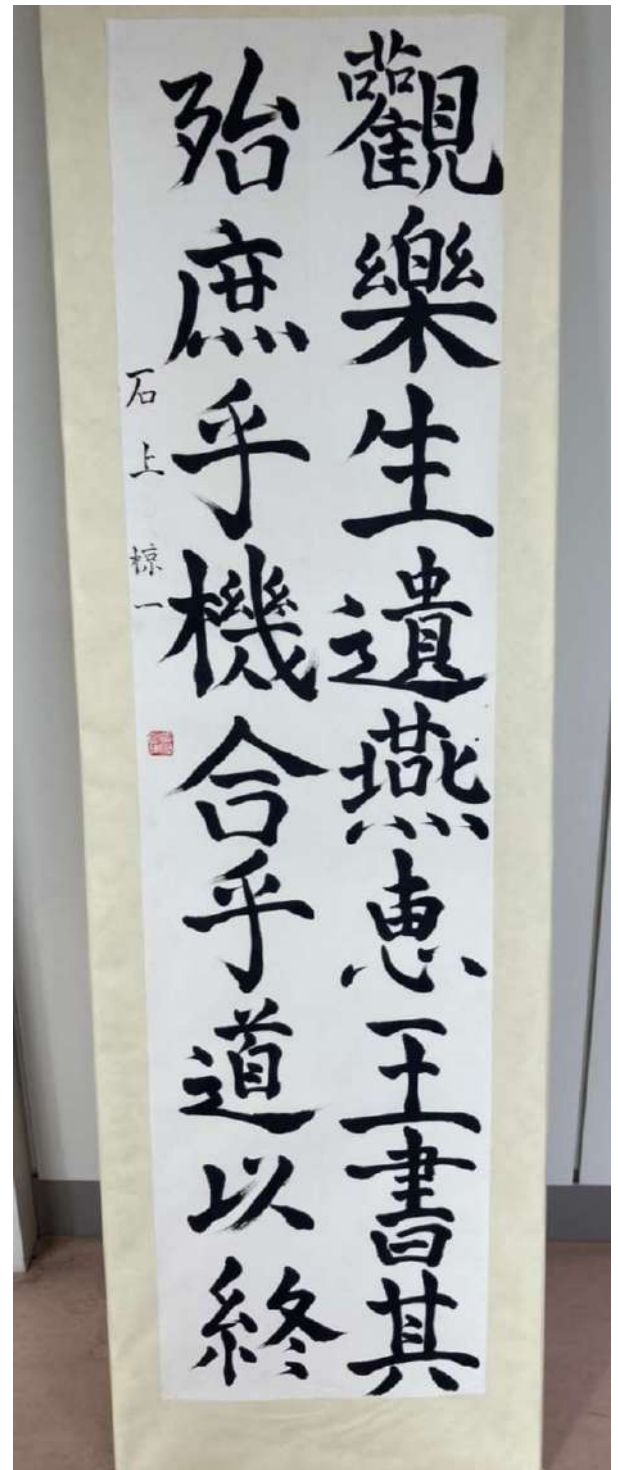 觀樂生遺燕惠王書其
殆庶乎機合乎道以終
石上椋一